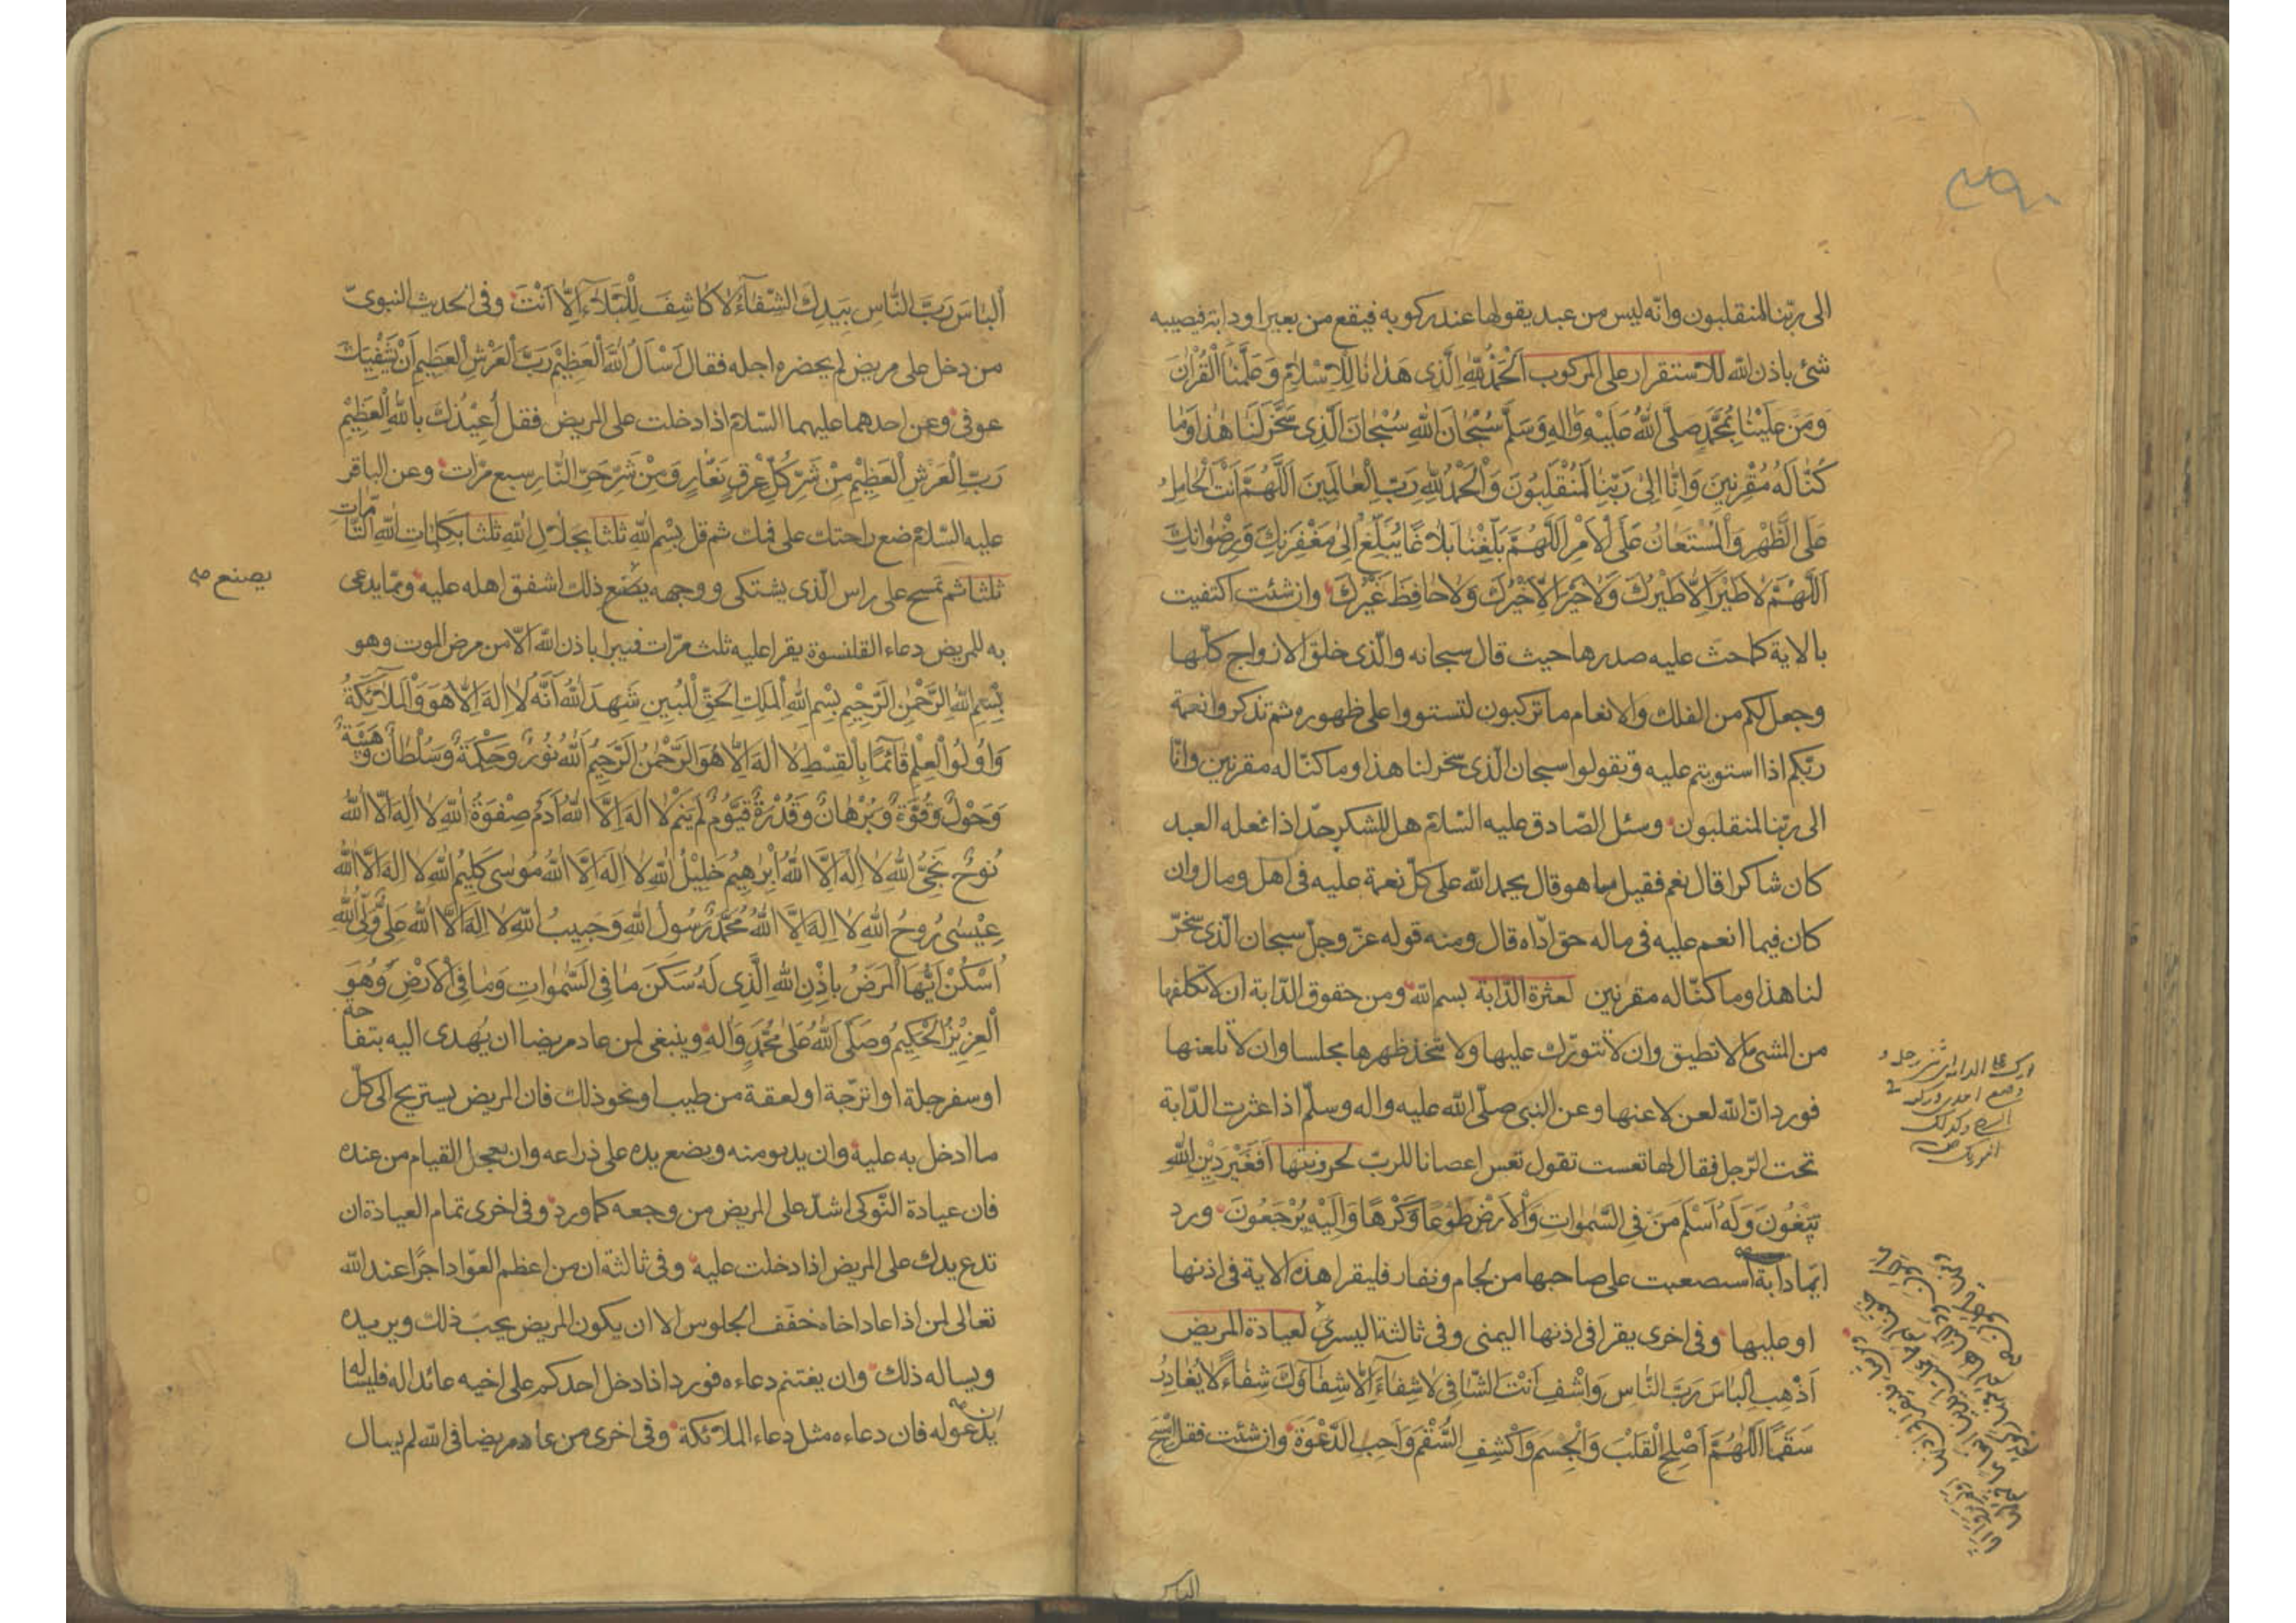 الى ربّنا لمنقلبون وانّه ليس من عبد يقولها عند ركوبه فيقع من بعير او دابة فيصيبه
شئ باذن الله للاستقرار على المركوب اَلْحَمْدُ لِلّٰهِ الَّذِى هَدٰانَا لِلْاِسْلٰامِ وَعَلَّمَنَا الْقُرْاٰنَ
وَمَنَّ عَلَيْنٰا بِمُحَمَّدٍ صَلَّى اللّٰهُ عَلَيْهِ وَاٰلِهِ وَسَلَّمَ سُبْحٰانَ اللّٰهِ سُبْحٰانَ الَّذِى سَخَّرَ لَنٰا هٰذٰا وَمٰا
كُنّٰا لَهُ مُقْرِنِينَ وَاِنّٰا اِلىٰ رَبِّنٰا لَمُنْقَلِبُونَ وَالْحَمْدُ لِلّٰهِ رَبِّ الْعٰالَمِينَ اَللّٰهُمَّ اَنْتَ الْحٰامِلُ
عَلَى الظَّهْرِ وَالْمُسْتَعٰانُ عَلَى الْاَمْرِ اَللّٰهُمَّ بَلِّغْنٰا بَلٰاغًا يُبَلِّغُ اِلىٰ مَغْفِرَتِكَ وَرِضْوٰانِكَ
اَللّٰهُمَّ لٰا طَيْرَ اِلّٰا طَيْرُكَ وَلٰا خَيْرَ اِلّٰا خَيْرُكَ وَلٰا حٰافِظَ غَيْرُكَ وان شئت اكتفيت
بالاية كما حثّ عليه صدرها حيث قال سبحانه والّذى خلق الازواج كلّها
وجعل لكم من الفلك والانعام ما تركبون لتستووا على ظهوره ثم تذكروا نعمة
ربّكم اذا استويتم عليه وتقولوا سبحان الّذى سخر لنا هذا وما كنّا له مقرنين وانّا
الى ربّنا لمنقلبون وسئل الصّادق عليه السّلام هل للشكر حدّ اذا فعله العبد
كان شاكرا قال نعم فقيل ما هو قال يحمد الله على كلّ نعمة عليه فى اهل ومال وان
كان فيما انعم عليه فى ماله حق ادّاه قال ومنه قوله عزّ وجلّ سبحان الّذى سخّر
لنا هذا وما كنّا له مقرنين لعثرة الدّابة بسم الله ومن حقوق الدّابة ان لا تكلفها
من المشى ما لا تطيق وان لا تتورّك عليها ولا تتخذ ظهرها مجلسا وان لا تلعنها
فورد انّ الله لعن لاعنها وعن النبى صلّى الله عليه واله وسلّم اذا عثرت الدّابة
تحت الرّجل فقال لها تعست تقول تعس اعصانا للربّ لحرونتها اَفَغَيْرَ دِيْنِ اللّٰهِ
تَبْغُونَ وَلَهُ اَسْلَمَ مَنْ فِى السَّمٰوٰاتِ وَالْاَرْضِ طَوْعًا وَكَرْهًا وَاِلَيْهِ يُرْجَعُونَ ورد
ايّما دابة استصعبت على صاحبها من لجام ونفار فليقرا هذه الاية فى اذنها
او عليها وفى اخرى يقرا فى اذنها اليمنى وفى ثالثة اليسرى لعيادة المريض
اَذْهِبِ الْبٰاسَ رَبَّ النّٰاسِ وَاشْفِ اَنْتَ الشّٰافِى لٰا شِفٰاءَ اِلّٰا شِفٰاؤُكَ شِفٰاءً لٰا يُغٰادِرُ
سَقَمًا اَللّٰهُمَّ اَصْلِحِ الْقَلْبَ وَالْجِسْمَ وَاكْشِفِ السُّقْمَ وَاَجِبِ الدَّعْوَةَ وان شئت فقل امْسَحِ
الباس
اَلْبٰاسَ رَبَّ النّٰاسِ بِيَدِكَ الشِّفٰاءُ لٰا كٰاشِفَ لِلْبَلٰاءِ اِلّٰا اَنْتَ وفى الحديث النبوىّ
من دخل على مريض لم يحضره اجله فقال اَسْاَلُ اللّٰهَ الْعَظِيْمَ رَبَّ الْعَرْشِ الْعَظِيْمِ اَنْ يَشْفِيَكَ
عوفى وعن احدهما عليهما السّلام اذا دخلت على المريض فقل اُعِيْذُكَ بِاللّٰهِ الْعَظِيْمِ
رَبِّ الْعَرْشِ الْعَظِيْمِ مِنْ شَرِّ كُلِّ عِرْقٍ نَعّٰارٍ وَمِنْ شَرِّ حَرِّ النّٰارِ سبع مرّات وعن الباقر
عليه السّلام ضع راحتك على فمك ثم قل بِسْمِ اللّٰهِ ثلثا بِجَلٰالِ اللّٰهِ ثلثا بِكَلِمٰاتِ اللّٰهِ التّٰامّٰاتِ
ثلثا ثم تمسح على راس الّذى يشتكى ووجهه يصنع ذلك اشفق اهله عليه وممّا يدعى
يصنع صه
به للمريض دعاء القلنسوة يقرا عليه ثلث مرّات فيبرا باذن الله الّا من مرض الموت وهو
بِسْمِ اللّٰهِ الرَّحْمٰنِ الرَّحِيْمِ بِسْمِ اللّٰهِ الْمَلِكِ الْحَقِّ الْمُبِينِ شَهِدَ اللّٰهُ اَنَّهُ لٰا اِلٰهَ اِلّٰا هُوَ وَالْمَلٰائِكَةُ
وَاُولُوا الْعِلْمِ قٰائِمًا بِالْقِسْطِ لٰا اِلٰهَ اِلّٰا هُوَ الرَّحْمٰنُ الرَّحِيْمُ اَللّٰهُ نُورٌ وَحِكْمَةٌ وَسُلْطٰانٌ وَهَيْبَةٌ
وَحَوْلٌ وَقُوَّةٌ وَبُرْهٰانٌ وَقُدْرَةٌ قَيُّومٌ لَمْ يَنَمْ لٰا اِلٰهَ اِلَّا اللّٰهُ اٰدَمُ صِفْوَةُ اللّٰهِ لٰا اِلٰهَ اِلَّا اللّٰهُ
نُوحٌ نَجِىُّ اللّٰهِ لٰا اِلٰهَ اِلَّا اللّٰهُ اِبْرٰهِيْمُ خَلِيْلُ اللّٰهِ لٰا اِلٰهَ اِلَّا اللّٰهُ مُوسىٰ كَلِيْمُ اللّٰهِ لٰا اِلٰهَ اِلَّا اللّٰهُ
عِيْسىٰ رُوحُ اللّٰهِ لٰا اِلٰهَ اِلَّا اللّٰهُ مُحَمَّدٌ رَسُولُ اللّٰهِ وَحَبِيبُ اللّٰهِ لٰا اِلٰهَ اِلَّا اللّٰهُ عَلِىٌّ وَلِىُّ اللّٰهِ
اُسْكُنْ اَيُّهَا الْمَرَضُ بِاِذْنِ اللّٰهِ الَّذِى لَهُ سَكَنَ مٰا فِى السَّمٰوٰاتِ وَمٰا فِى الْاَرْضِ وَهُوَ
الْعَزِيْزُ الْحَكِيْمُ وَصَلَّى اللّٰهُ عَلىٰ مُحَمَّدٍ وَاٰلِهِ وينبغى لمن عاد مريضا ان يهدى اليه بتفاحة
او سفرجلة او اترجّة او لعقة من طيب او نحو ذلك فان المريض يستريح الى كلّ
ما ادخل به عليه وان يدنو منه ويضع يده على ذراعه وان يعجل القيام من عنده
فان عيادة النّوكى اشدّ على المريض من وجعه كما ورد وفى اخرى تمام العيادة ان
تدع يدك على المريض اذا دخلت عليه وفى ثالثة ان من اعظم العوّاد اجرًا عند الله
تعالى لمن اذا عاد اخاه خفّف الجلوس الا ان يكون المريض يحبّ ذلك ويريده
ويساله ذلك وان يغتنم دعاءه فورد اذا دخل احدكم على اخيه عائدا له فليساله
ان يدعو له فان دعاءه مثل دعاء الملائكة وفى اخرى من عاد مريضا فى الله لم يسال